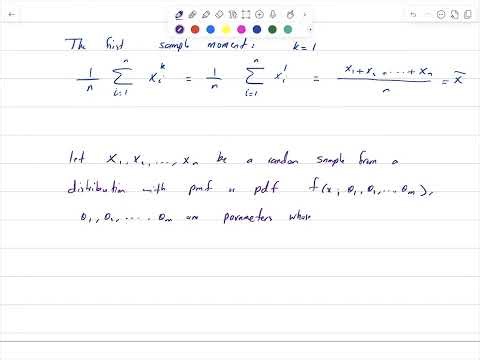 The first sample moment: k=1
1/n ∑_{i=1}^{n} X_i^k = 1/n ∑_{i=1}^{n} X_i^1 = (X_1+X_2+...+X_n)/n = X̄
let X_1, X_2, ..., X_n be a random sample from a
distribution with pmf or pdf f(x; θ_1, θ_2, ... θ_m),
θ_1, θ_2, ... θ_m are parameters whose